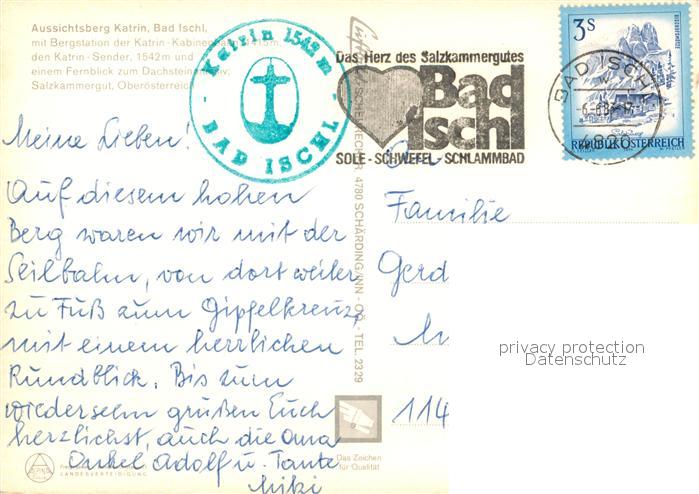 Aussichtsberg Katrin, Bad Ischl,
mit Bergstation der Katrin-Kabinenbahn 1415m,
den Katrin-Sender, 1542m und
einem Fernblick zum Dachsteinmassiv;
Salzkammergut, Oberösterreich
Katrin 1542 m
BAD ISCHL
Das Herz des Salzkammergutes
Bad
Ischl
SOLE-SCHWEFEL-SCHLAMMBAD
3S
BAD ISCHL
4820
REPUBLIK ÖSTERREICH
Meine Lieben!
Auf diesem hohen
Berg waren wir mit der
Seilbahn, von dort weiter
zu Fuß zum Gipfelkreuz,
mit einem herrlichen
Rundblick. Bis zum
wiedersehn grüßen Euch
herzlichst, auch die Oma
Onkel Adolf u. Tante
Miki
4780 SCHÄRDING/INN - OÖ - TEL. 2329
An
Familie
Gerd
114
Das Zeichen
für Qualität
LANDESVERTEIDIGUNG
privacy protection
Datenschutz